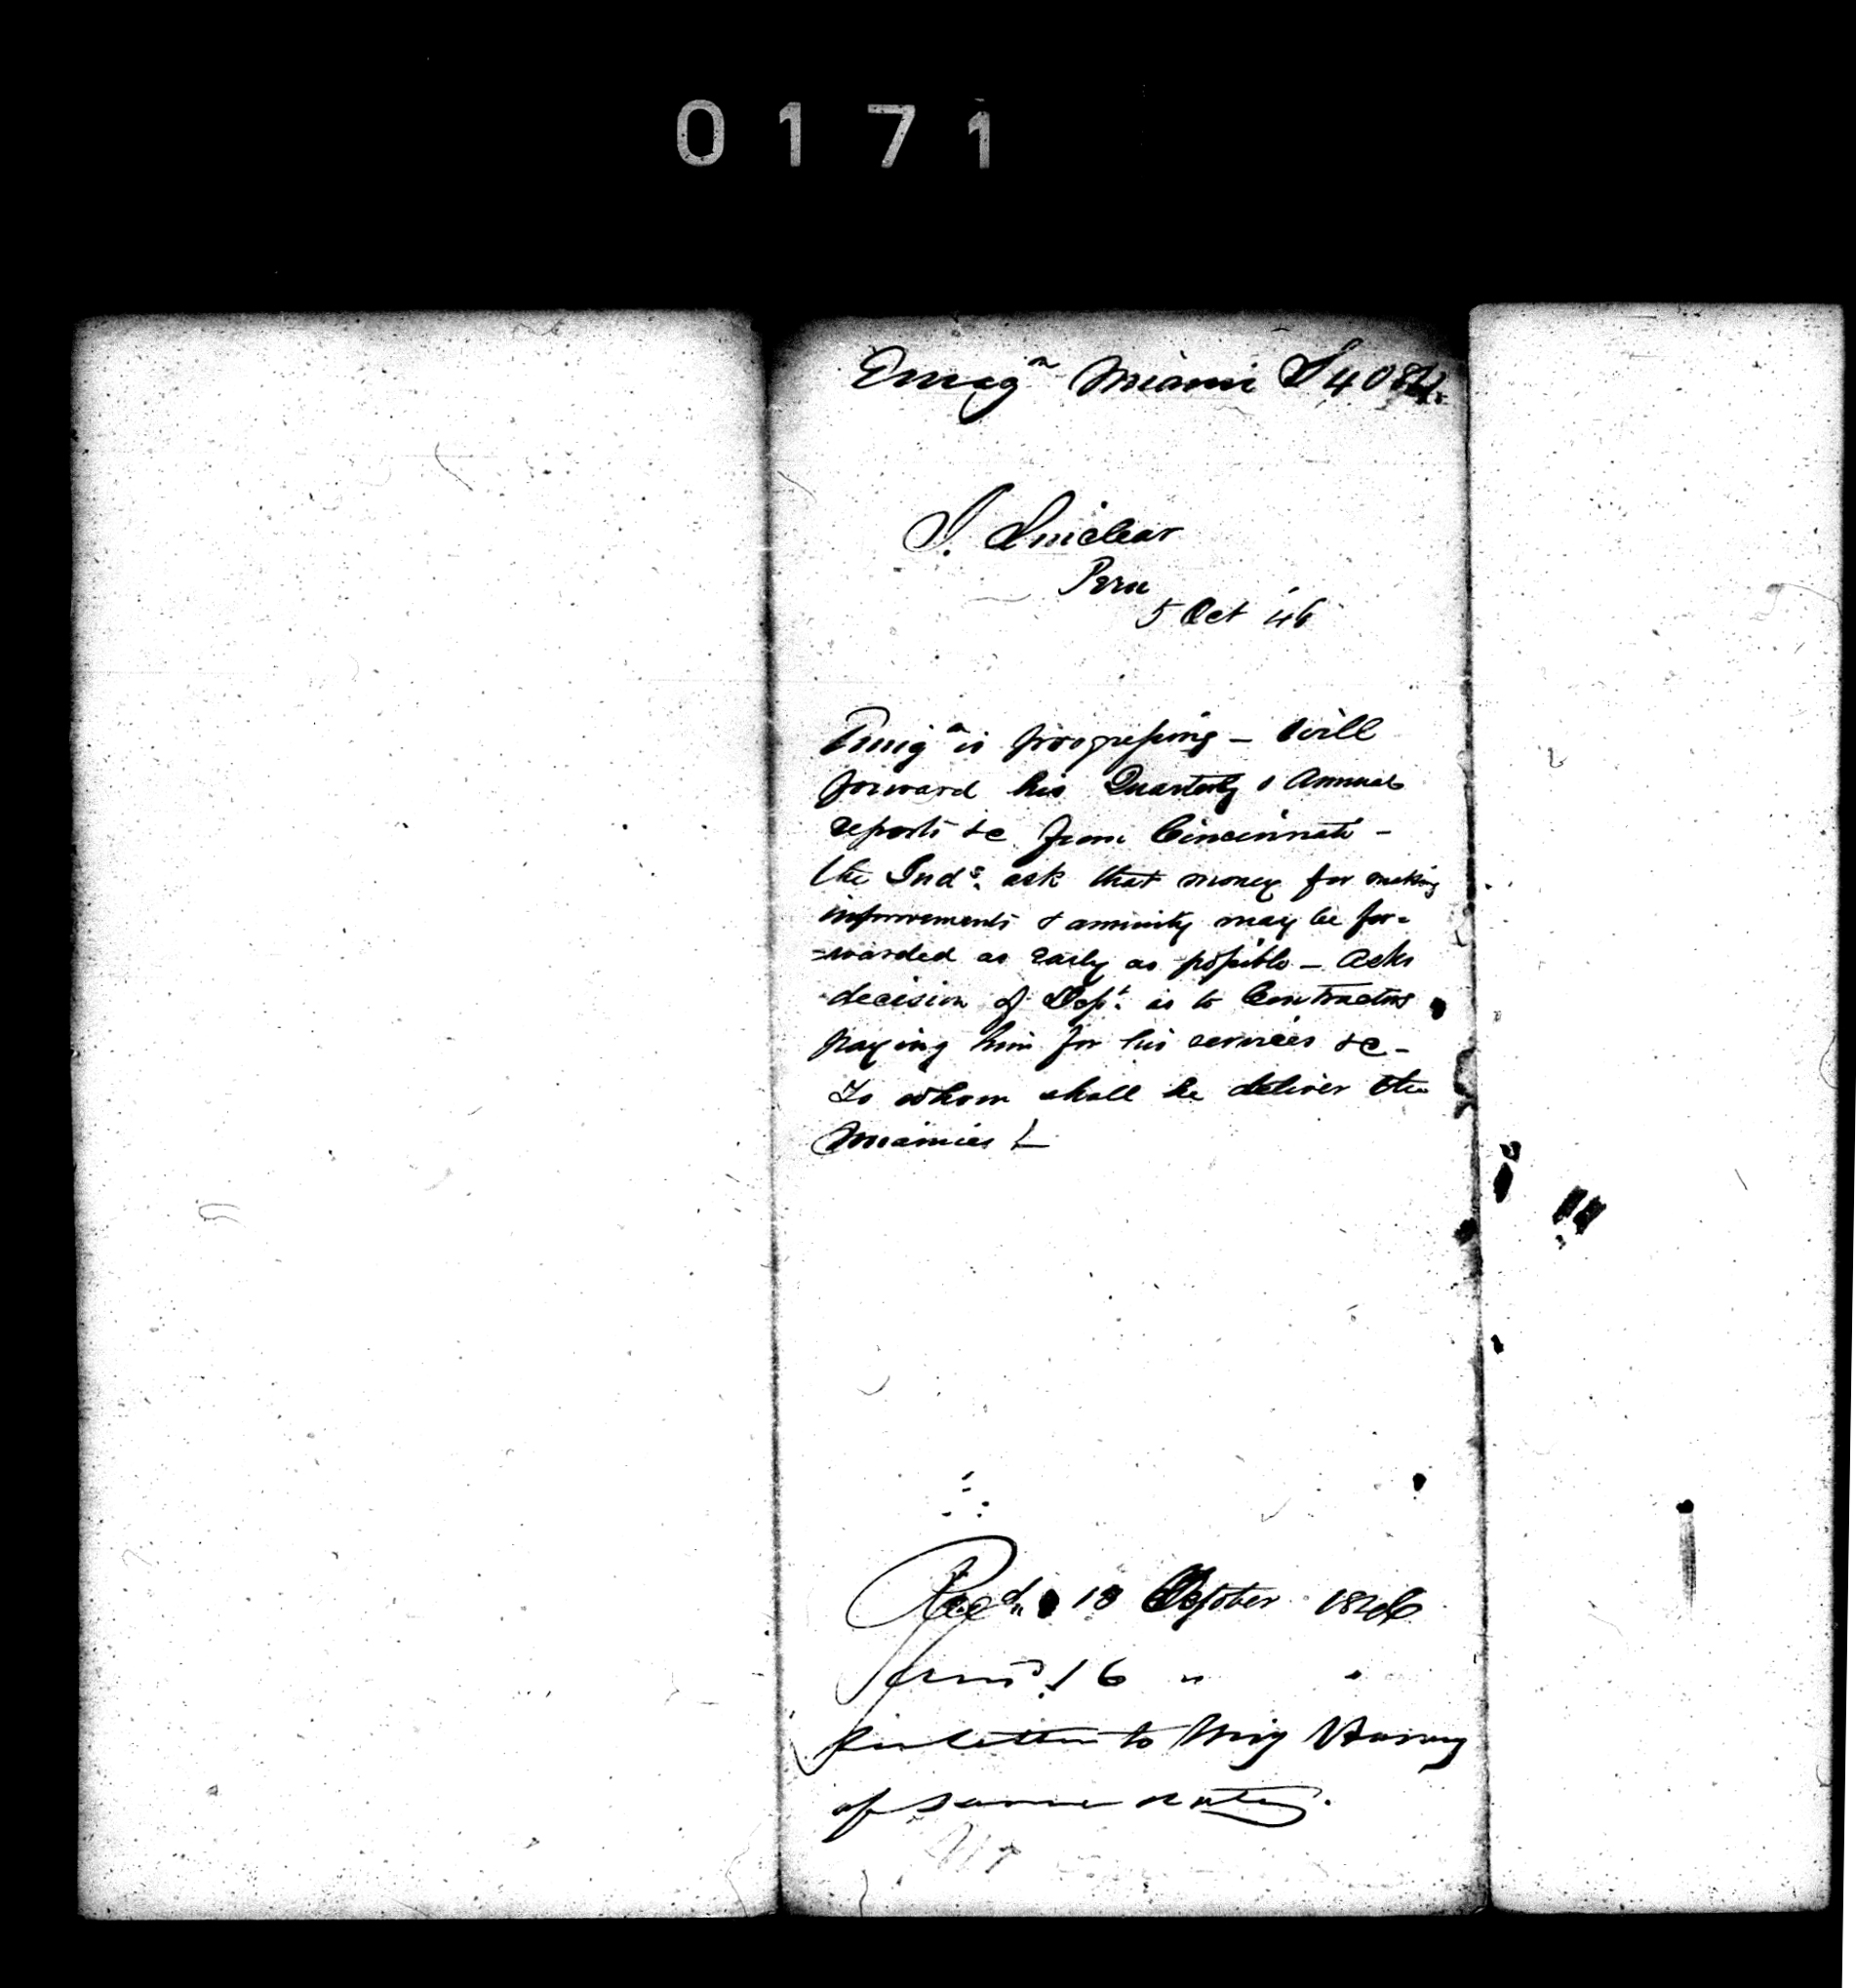 0171
Emigⁿ Miami S4084.
J. Sinclear
Peru
5 Oct 46
Emigⁿ is progressing – Will
forward his Quarterly & Annual
reports &c from Cincinnati –
the Indˢ. ask that money for making
improvements & annuity may be for=
=warded as early as possible – asks
decision of Depᵗ. as to Contractors
paying him for his services &c –
To whom shall he deliver the
Miamies
Recᵈ 13 October 1846
Ansᵈ 16 " "
See letter to Maj Harvey
of same date.